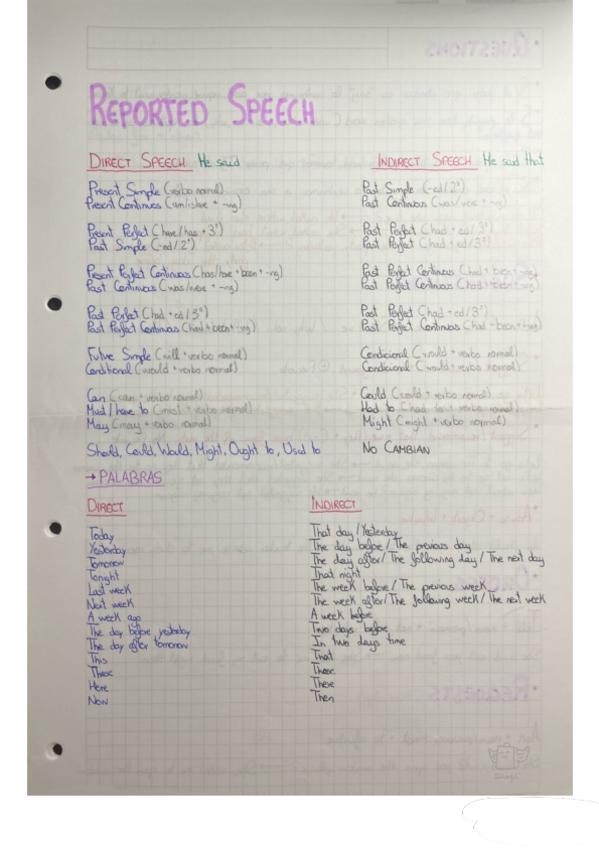 REPORTED SPEECH
DIRECT SPEECH He said INDIRECT SPEECH He said that
Present Simple (verbo normal) Past Simple (-ed/2ª)
Present Continuos (am/is/are + -ing) Past Continuos (was/were + -ing)
Present Perfect (have/has + 3ª) Past Perfect (had + ed/3ª)
Past Simple (-ed/2ª) Past Perfect (had + ed/3ª)
Present Perfect Continuous (has/have + been + -ing) Past Perfect Continuos (had + been + -ing)
Past Continuos (was/were + -ing) Past Perfect Continuos (had + been + -ing)
Past Perfect (had + ed/3ª) Past Perfect (had + ed/3ª)
Past Perfect Continuous (had + been + -ing) Past Perfect Continuos (had + been + -ing)
Future Simple (will + verbo normal) Condicional (would + verbo normal)
Conditional (would + verbo normal) Condicional (would + verbo normal)
Can (can + verbo normal) Could (could + verbo normal)
Must/have to (must + verbo normal) Had to (had to + verbo normal)
May (may + verbo normal) Might (might + verbo normal)
Should, Could, Would, Might, Ought to, Used to NO CAMBIAN
→ PALABRAS
DIRECT INDIRECT
Today That day / Yesterday
Yesterday The day before / The previous day
Tomorrow The day after / The following day / The next day
Tonight That night
Last week The week before / The previous week
Next week The week after / The following week / The next week
A week ago A week before
The day before yesterday Two days before
The day after tomorrow In two days time
This That
These Those
Here There
Now Then